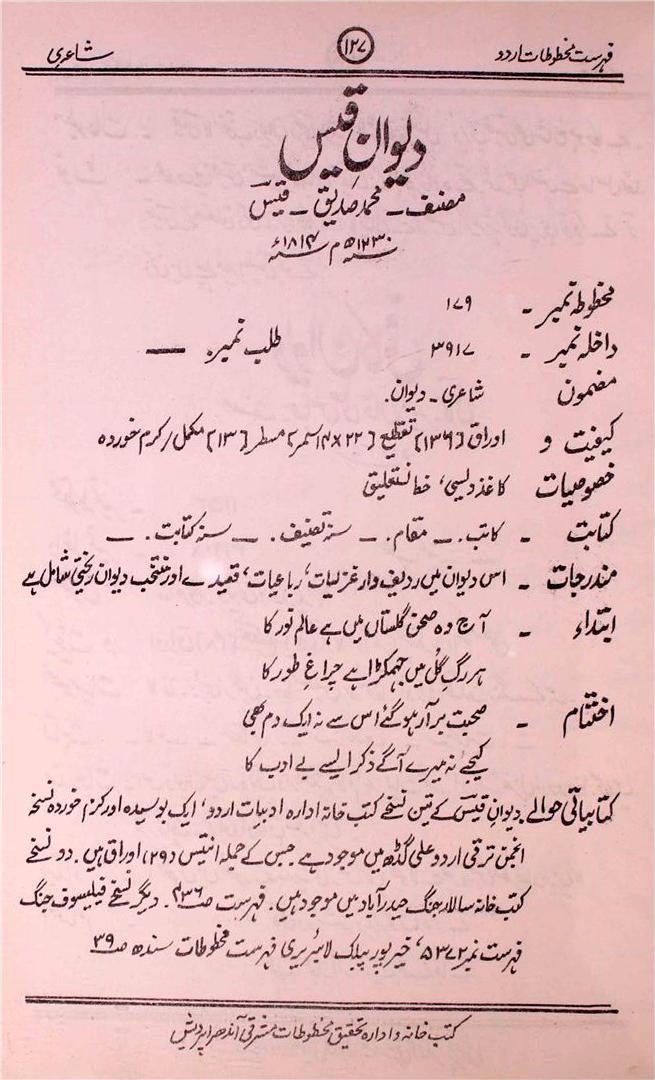 فہرست مخطوطات اردو ۱۲۷ شاعری
دیوانِ قیس
مصنف ۔ محمد صدیق ۔ قیسؔ
سنہ ۱۲۳۰ھ م سنہ ۱۸۱۴ء
مخطوطہ نمبر ۔ ۱۷۹
داخلہ نمبر ۔ ۳۹۱۷ طلب نمبر ۔ ——
مضمون شاعری ۔ دیوان ۔
کیفیت و اوراق [۱۳۶] تقطیع [۲۲×۱۴ سمر] مسطر [۱۳] مکمل / کرم خوردہ
خصوصیات کاغذ دیسی، خط نستعلیق
کتابت ۔ کاتب ۔ — مقام ۔ — سنہ تصنیف ۔ — سنہ کتابت ۔ —
مندرجات ۔ اس دیوان میں ردیف وار غزلیات، رباعیات، قصیدے اور منتخب دیوان ریختی شامل ہے
ابتداء ۔ آج وہ صحن گلستاں میں ہے عالم نور کا
ہر رگِ گُل میں جھمکڑا ہے چراغِ طور کا
اختتام ۔ صحبت برآر ہوگئے اس سے نہ ایک دم بھی
کیجئے نہ میرے آگے ذکر ایسے بے ادب کا
کتابیاتی حوالے ۔ دیوانِ قیسؔ کے تین نسخے کتب خانہ ادارہ ادبیات اردو، ایک بوسیدہ اور کرم خوردہ نسخہ
انجمن ترقی اردو علی گڈھ میں موجود ہے جس کے جملہ انتیس (۲۹) اوراق ہیں ۔ دو نسخے
کتب خانہ سالار جنگ حیدرآباد میں موجود ہیں ۔ فہرست صہ ۴۳۶ ۔ دیگر نسخے فیلیسوف جنگ
فہرست نمبر ۵۳۷۲، خیرپور پبلک لائبریری فہرست مخطوطات سندھ صہ ۳۹
کتب خانہ و ادارہ تحقیق مخطوطات مشرقی آندھراپردیش